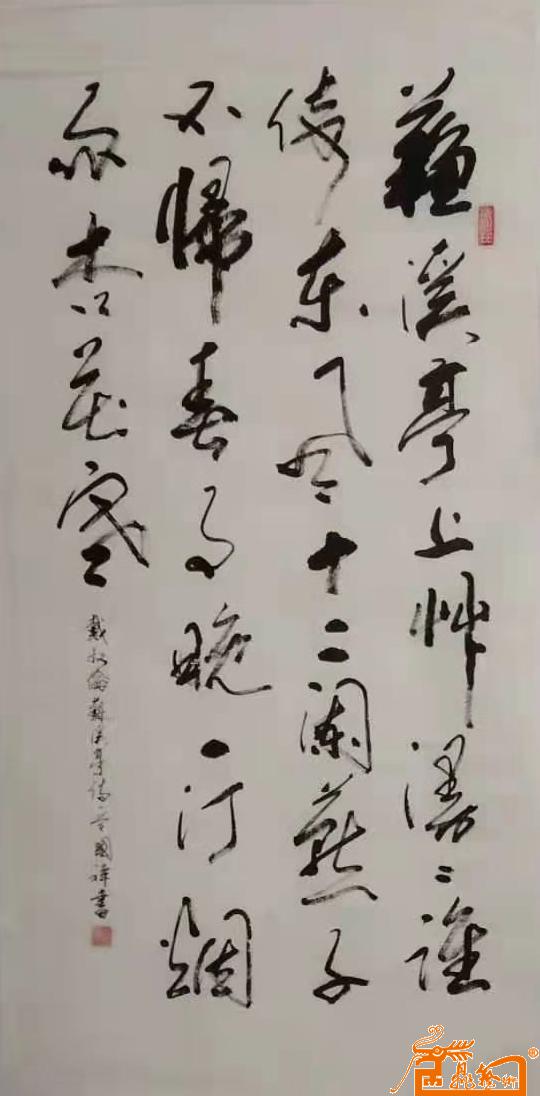 蘇溪亭上艸漫〻誰
倚東風十二闌燕子
不歸春事晚一汀烟
雨杏花寒
戴叔倫蘇溪亭詩 國祥書